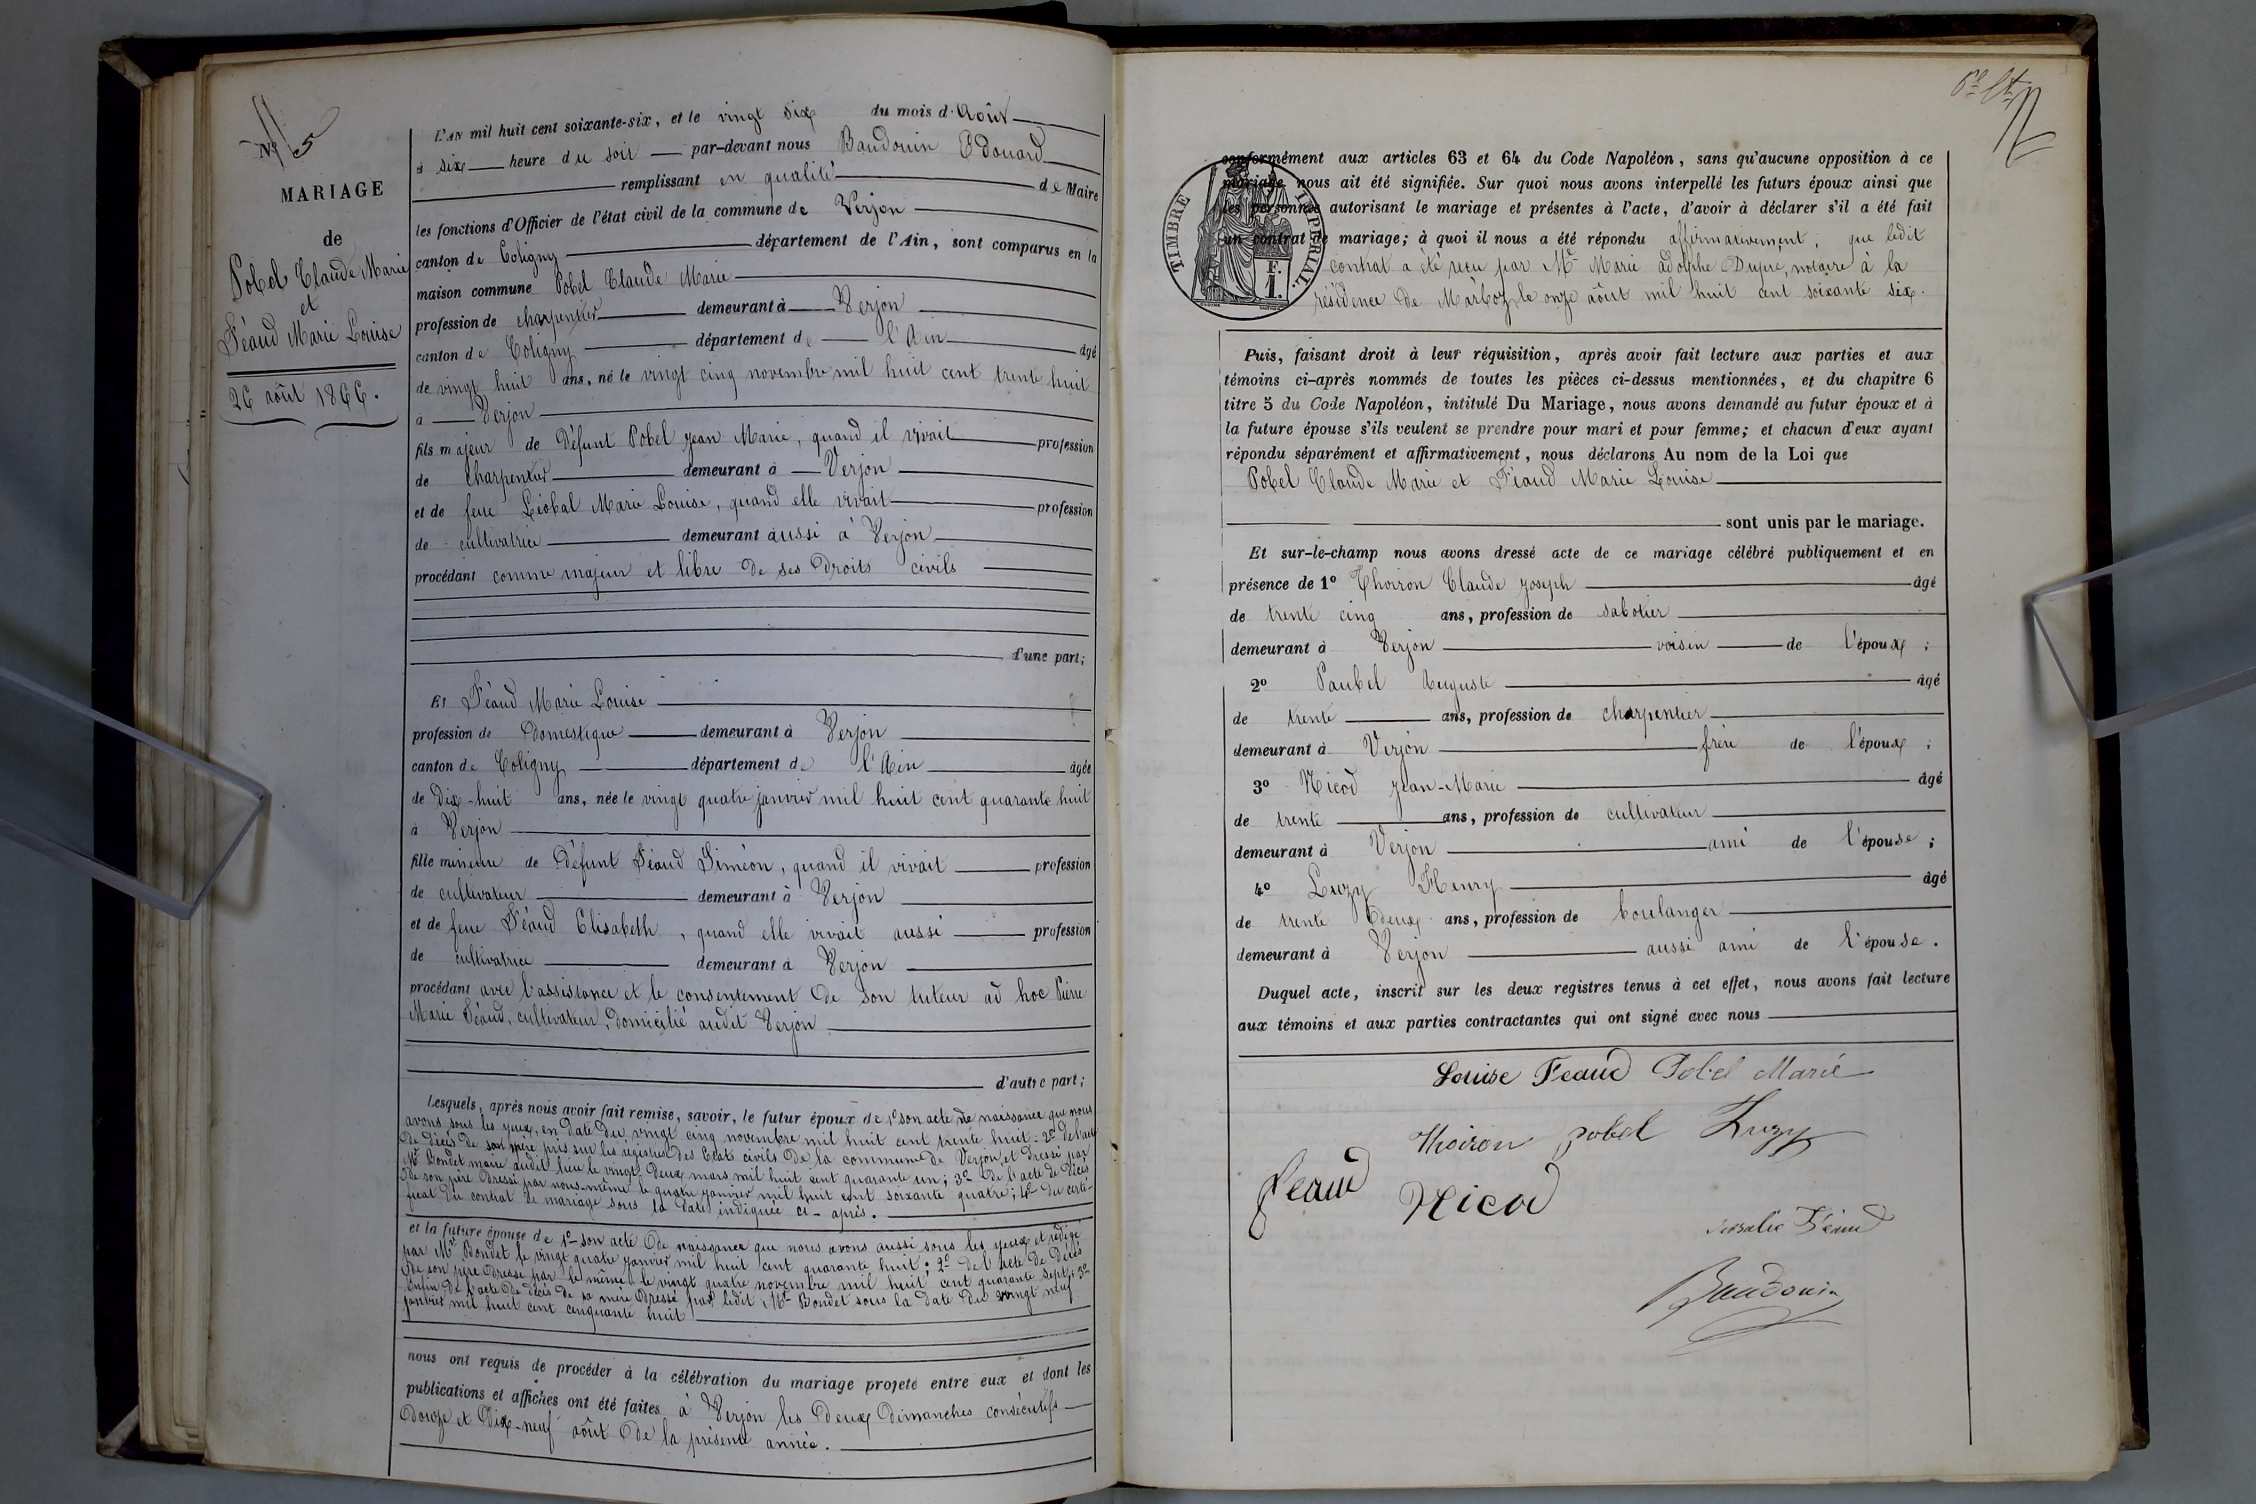 Nº 5
MARIAGE
de
Pobel Claude Marie
et
Féaud Marie Louise
26 août 1866.
L'AN mil huit cent soixante-six, et le vingt six du mois d'Août
à six heure du soir par-devant nous Baudouin Edouard
remplissant en qualité de Maire
les fonctions d'Officier de l'état civil de la commune de Verjon
canton de Coligny département de l'Ain, sont comparus en la
maison commune Pobel Claude Marie
profession de charpentier demeurant à Verjon
canton de Coligny département de l'Ain âgé
de vingt huit ans, né le vingt cinq novembre mil huit cent trente huit
à Verjon
fils majeur de Défunt Pobel Jean Marie, quand il vivait profession
de charpentier demeurant à Verjon
et de feue Léobal Marie Louise, quand elle vivait profession
de cultivatrice demeurant aussi à Verjon
procédant comme majeur et libre de ses droits civils
d'une part;
Et Féaud Marie Louise
profession de Domestique demeurant à Verjon
canton de Coligny département de l'Ain âgée
de Dix-huit ans, née le vingt quatre janvier mil huit cent quarante huit
à Verjon
fille mineure de Défunt Féaud Siméon, quand il vivait profession
de cultivateur demeurant à Verjon
et de feue Féaud Elisabeth, quand elle vivait aussi profession
de cultivatrice demeurant à Verjon
procédant avec l'assistance et le consentement de son tuteur ad hoc Pierre
Marie Féaud, cultivateur, domicilié audit Verjon
d'autre part;
Lesquels, après nous avoir fait remise, savoir, le futur époux de 1º son acte de naissance que nous
avons sous les yeux, en date du vingt cinq novembre mil huit cent trente huit - 2º De l'acte
de décès de son père pris sur les registres des Etats civils de la commune de Verjon, et dressé par
Mr Bondet maire audit lieu le vingt deux mars mil huit cent quarante un; 3º De l'acte de décès
de son père dressé par nous-même le quatre janvier mil huit cent soixante quatre; 4º du certi-
ficat du contrat de mariage sous la date indiquée ci-après.
et la future épouse de 1º son acte de naissance que nous avons aussi sous les yeux et rédigé
par Mr Bondet le vingt quatre janvier mil huit cent quarante huit; 2º de l'acte de Décès
de son père dressé par le même le vingt quatre novembre mil huit cent quarante sept; 3º
Enfin de l'acte de décès de sa mère dressé par ledit Mr Bondet sous la date du vingt neuf
janvier mil huit cent cinquante huit
nous ont requis de procéder à la célébration du mariage projeté entre eux et dont les
publications et affiches ont été faites à Verjon les deux dimanches consécutifs
Douze et Dix-neuf août de la présente année.
TIMBRE IMPÉRIAL.
F.
1.
conformément aux articles 63 et 64 du Code Napoléon, sans qu'aucune opposition à ce
mariage nous ait été signifiée. Sur quoi nous avons interpellé les futurs époux ainsi que
les personnes autorisant le mariage et présentes à l'acte, d'avoir à déclarer s'il a été fait
un contrat de mariage; à quoi il nous a été répondu affirmativement; que ledit
contrat a été reçu par Me Marie adolphe Dupré, notaire à la
résidence de Marboz, le onze août mil huit cent soixante six.
Puis, faisant droit à leur réquisition, après avoir fait lecture aux parties et aux
témoins ci-après nommés de toutes les pièces ci-dessus mentionnées, et du chapitre 6
titre 5 du Code Napoléon, intitulé Du Mariage, nous avons demandé au futur époux et à
la future épouse s'ils veulent se prendre pour mari et pour femme; et chacun d'eux ayant
répondu séparément et affirmativement, nous déclarons Au nom de la Loi que
Pobel Claude Marie et Féaud Marie Louise
sont unis par le mariage.
Et sur-le-champ nous avons dressé acte de ce mariage célébré publiquement et en
présence de 1º Thoiron Claude Joseph âgé
de trente cinq ans, profession de sabotier
demeurant à Verjon voisin de l'époux;
2º Paubel Auguste âgé
de trente ans, profession de charpentier
demeurant à Verjon frère de l'époux;
3º Nicod Jean-Marie âgé
de trente ans, profession de cultivateur
demeurant à Verjon ami de l'épouse;
4º Luzy Henry âgé
de trente deux ans, profession de boulanger
demeurant à Verjon aussi ami de l'épouse.
Duquel acte, inscrit sur les deux registres tenus à cet effet, nous avons fait lecture
aux témoins et aux parties contractantes qui ont signé avec nous
Louise Feaud Pobel Marie
Thoiron pobel Luzy
feaud Nicod
rosalie Féaud
Baudouin